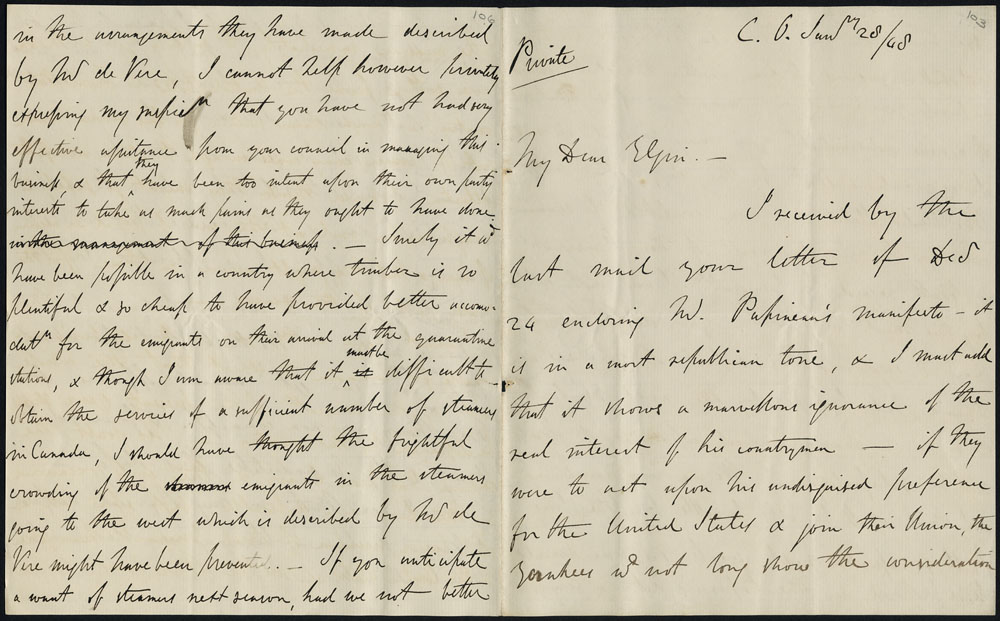 106
in the arrangements they have made described
by Mr de Vere, I cannot help however privately
expressing my suspicn that you have not had very
effective assistance from your council in managing this
business, & that they have been too intent upon their own party
interests to take as much pains as they ought to have done
in the management of this business. — Surely it wd
have been possible in a country where timber is so
plentiful & so cheap to have provided better accomo-
datn for the emigrants on their arrival at the quarantine
stations, & though I am aware that it must be it difficult to
obtain the services of a sufficient number of steamers
in Canada, I should have thought the frightful
crowding of the emigrants in the steamers
going to the west which is described by Mr de
Vere might have been prevented. — If you anticipate
a want of steamers next season, had we not better
103
C. O. Jany 28/48
Private
My Dear Elgin. —
I received by the
last mail your letter of Decr
24 enclosing Mr. Papineau's manifesto — it
is in a most republican tone, & I must add
that it shows a marvellous ignorance of the
real interest of his countrymen — if they
were to act upon his undisguised preference
for the United States & join their Union, the
Yankees wd not long show the consideration